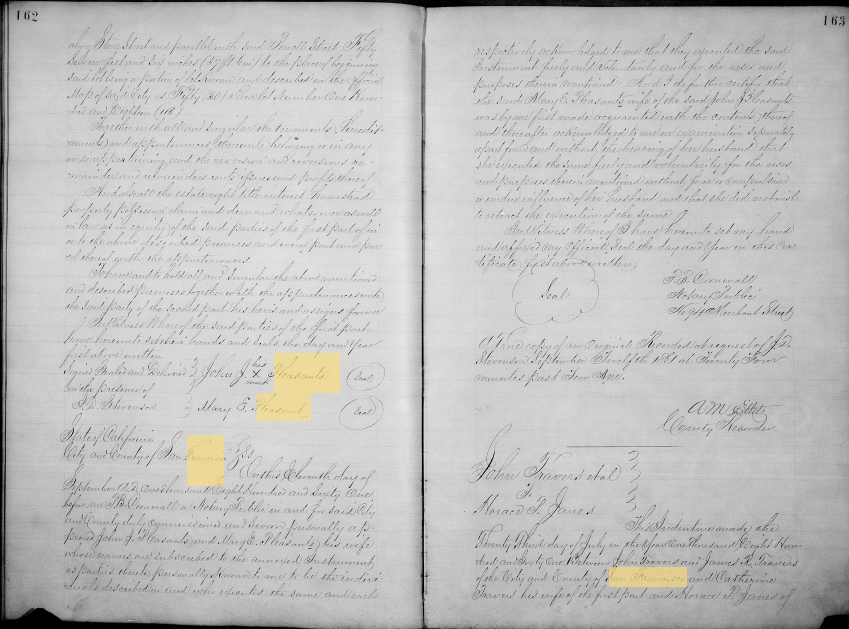 162
along Stone Street and parallel with said Powell Street Fifty
Seven feet and Six inches (57 ft 6 in) to the place of beginning
said lot being a portion of lot known and described on the Official
Map of said City as Fifty (50) Vara lot Number One Hun-
dred and Eighteen (118)
Together with all and singular the tenements, Heredit-
aments and appurtenances thereunto belonging or in any
wise appertaining and the reversion and reversions re-
mainder and remainders rents issues and profits thereof
And also all the estate right title interest homestead
property possession claim and demand whatsoever as well
in law as in equity of the said parties of the first part of in
or to the above described premises and every part and par-
cel thereof with the appurtenances
To have and to hold all and singular the above mentioned
and described premises together with the appurtenances unto
the said party of the second part his heirs and assigns forever
In Witness Whereof the said parties of the first part
have hereunto set their hands and seals the day and year
first above written
Signed Sealed and Delivered John J. his X mark Pleasants Seal
in the presence of
J. D. Stevenson Mary E. Pleasants Seal
State of California
City and County of San Francisco ss
On this Eleventh day of
September A.D. one thousand Eight hundred and Sixty One
before me F. P. Cornwall a Notary Public in and for said City
and County duly commissioned and sworn personally ap-
peared John J. Pleasants and Mary E. Pleasants his wife
whose names are subscribed to the annexed Instrument
as parties thereto personally known to me to be the indivi
duals described in and who executed the same and each
163
respectively acknowledged to me that they executed the said
Instrument freely and voluntarily and for the uses and
purposes therein mentioned And I do further certify that
the said Mary E. Pleasants wife of the said John J. Pleasants
was by me first made acquainted with the contents thereof
and thereafter acknowledged to me on examination separately
apart from and without the hearing of her husband that
she executed the same freely and voluntarily for the uses
and purposes therein mentioned without fear or compulsion
or undue influence of her husband and that she did not wish
to retract the execution of the same
In Witness Whereof I have hereunto set my hand
and affixed my Official Seal the day and Year in this Cer
tificate first above written
Seal
F. P. Cornwall
Notary Public
No 94 Merchant Street
A True copy of an Original Recorded at request of J. D.
Stevenson September Twelfth 1861 at Twenty Four
minutes past Ten AM.
County Recorder
John Travers et al
To
Horace P. Janes
This Indenture made the
Twenty Third day of July in the Year One Thousand Eight Hun
dred and Sixty One Between John Travers and James R. Travers
of the City and County of San Francisco and Catherine
Travers his wife of the first part and Horace P. Janes of